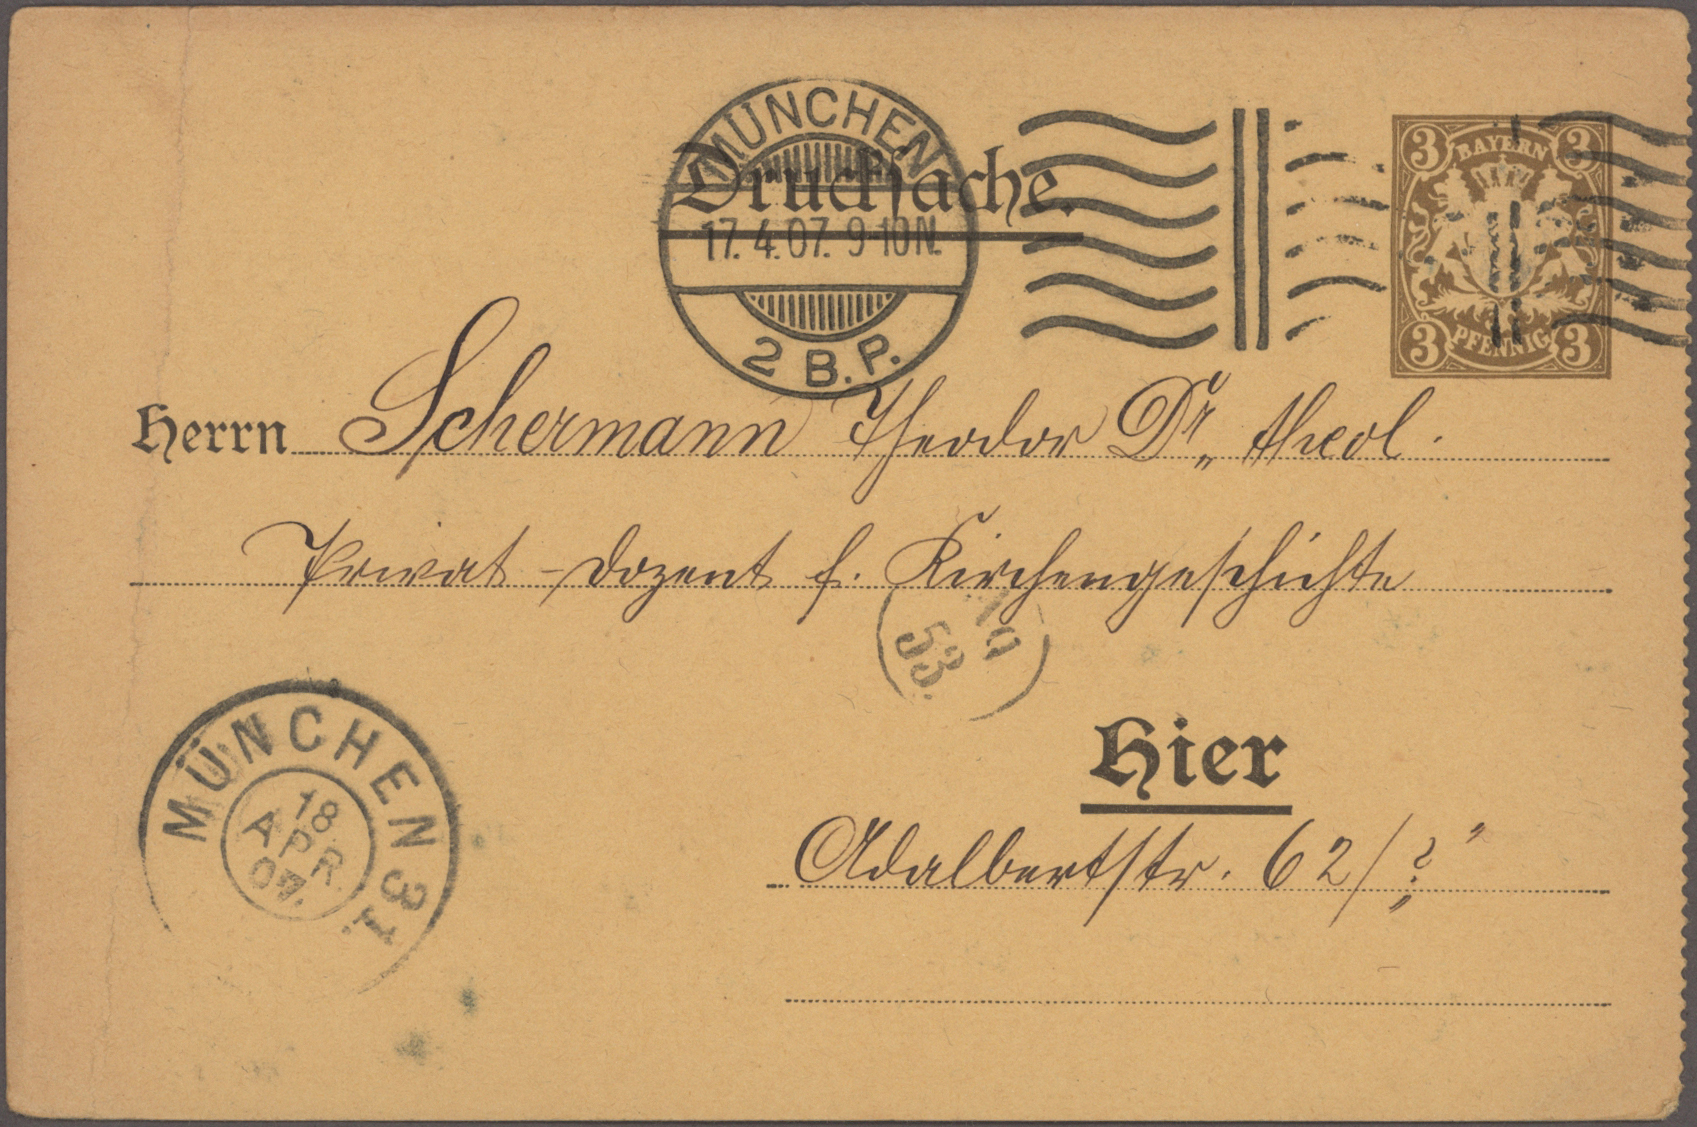 MÜNCHEN
Drucksache.
17. 4. 07. 9-10 N.
2 B. P.
3 3
BAYERN
PFENNIG
3 3
Herrn Schermann Theodor Dr. theol.
Privat-Dozent f. Kirchengeschichte
53.
Hier
Adalbertstr. 62/?
MÜNCHEN 31.
18
APR.
07.